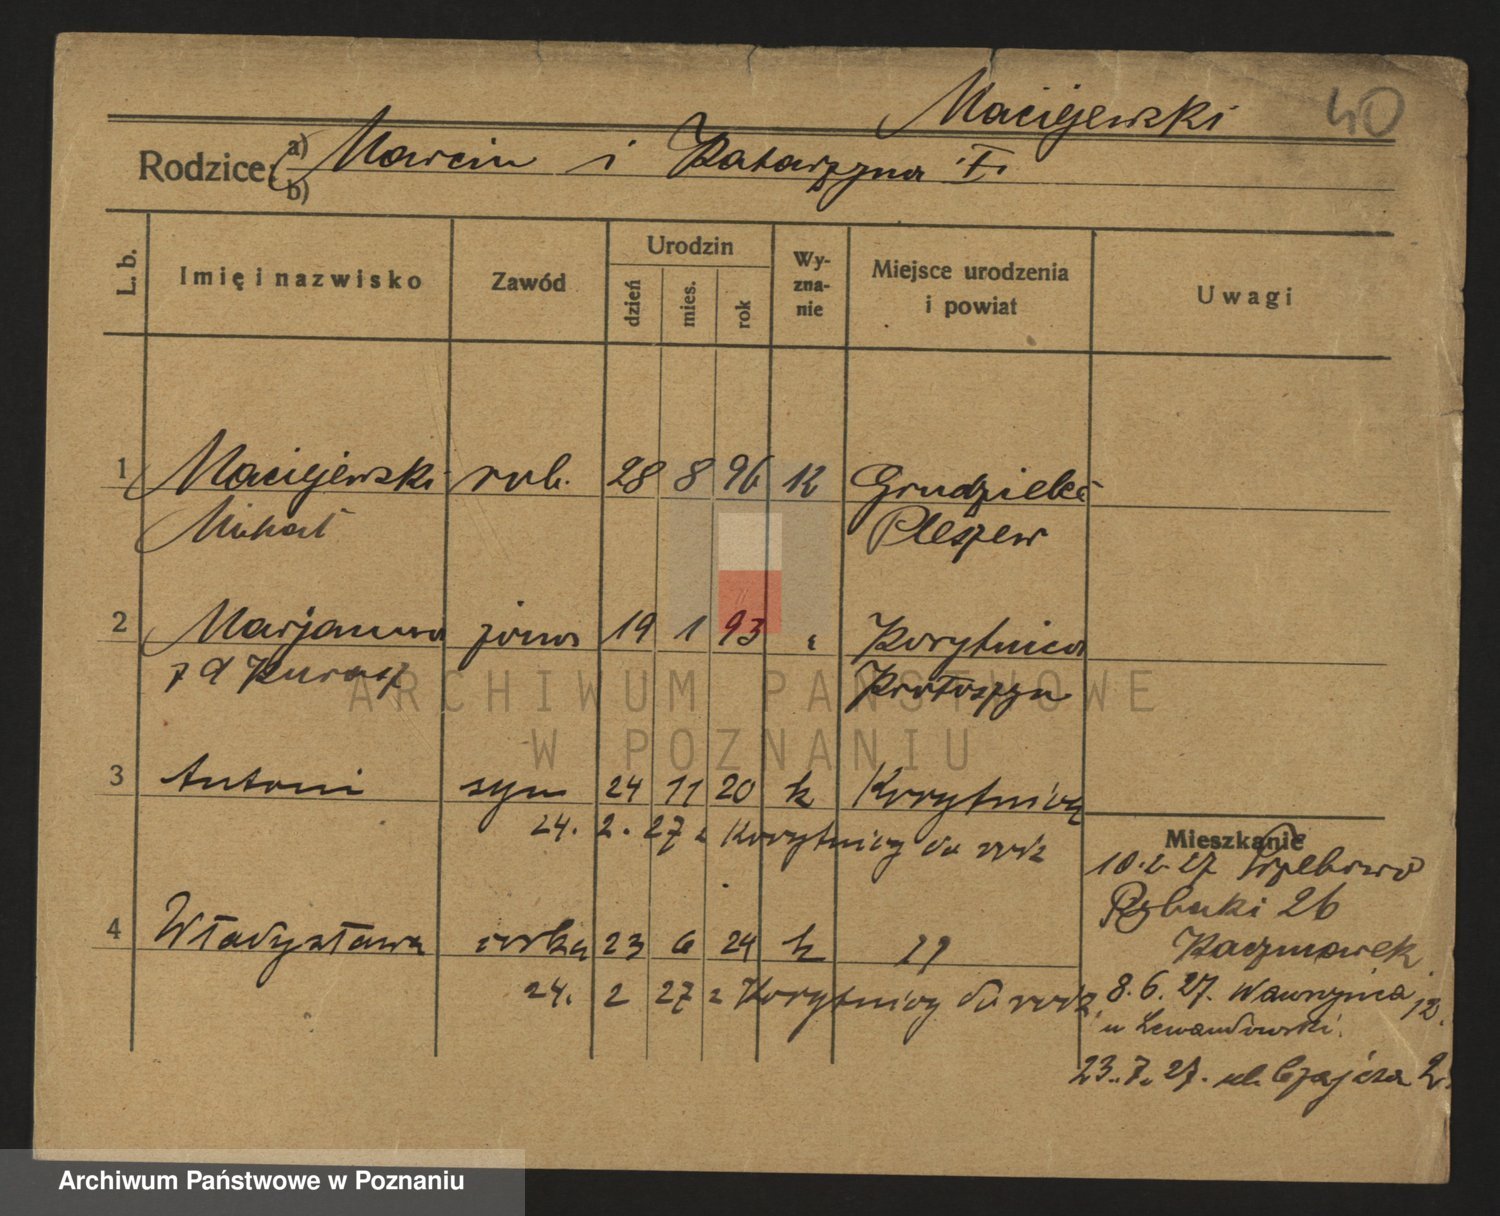 Maciejewski 40
Rodzice a) Marcin i Katarzyna
b)
L. b. Imię i nazwisko Zawód Urodzin dzień mies. rok Wyznanie Miejsce urodzenia i powiat Uwagi
1 Maciejewski rob. 28 8 96 k Grudzielec
Michał Pleszew
2 Marjanna żona 19 1 93 " Korytnica
z d Kurasz Krotoszyn
3 Antoni syn 24 11 20 k Korytnica
24. 2. 27 z Korytnicy do rodz
Mieszkanie
10.2.27
Rybaki 26
Kaczmarek
4 Władysława córka 23 6 24 k "
24. 2 27 z Korytnicy do rodz.
8.6.27. Wawrzyńca 12.
u Lewandowski.
23.7.27. ul. Czajcza 2.
ARCHIWUM PAŃSTWOWE
W POZNANIU
Archiwum Państwowe w Poznaniu